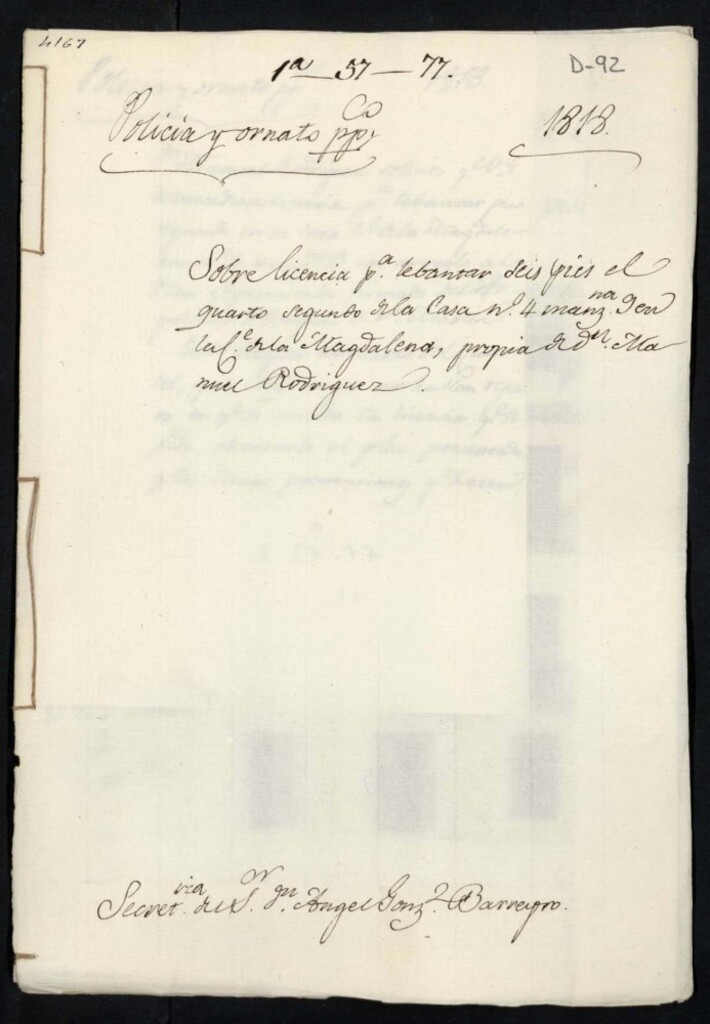 4167
1ª—57—77. D-92
Policia y ornato ppᶜᵒ 1818.
Sobre licencia pª lebantar seis pies el
quarto segundo de la Casa nº 4 manzⁿᵃ 9 en
la C.ᵉ de la Magdalena, propia de dⁿ. Ma
nuel Rodriguez.
Secretʳⁱᵃ del Sʳ. dⁿ. Angel Gonzᶻ. Barreyro.